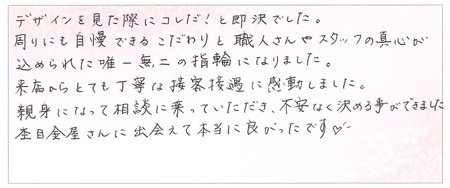 デザインを見た際にコレだ！と即決でした。
周りにも自慢できるこだわりと職人さんやスタッフの真心が
込められた唯一無二の指輪になりました。
来店からとても丁寧な接客接遇に感動しました。
親身になって相談に乗っていただき、不安なく決める事ができました
杢目金屋さんに出会えて本当に良かったです♡